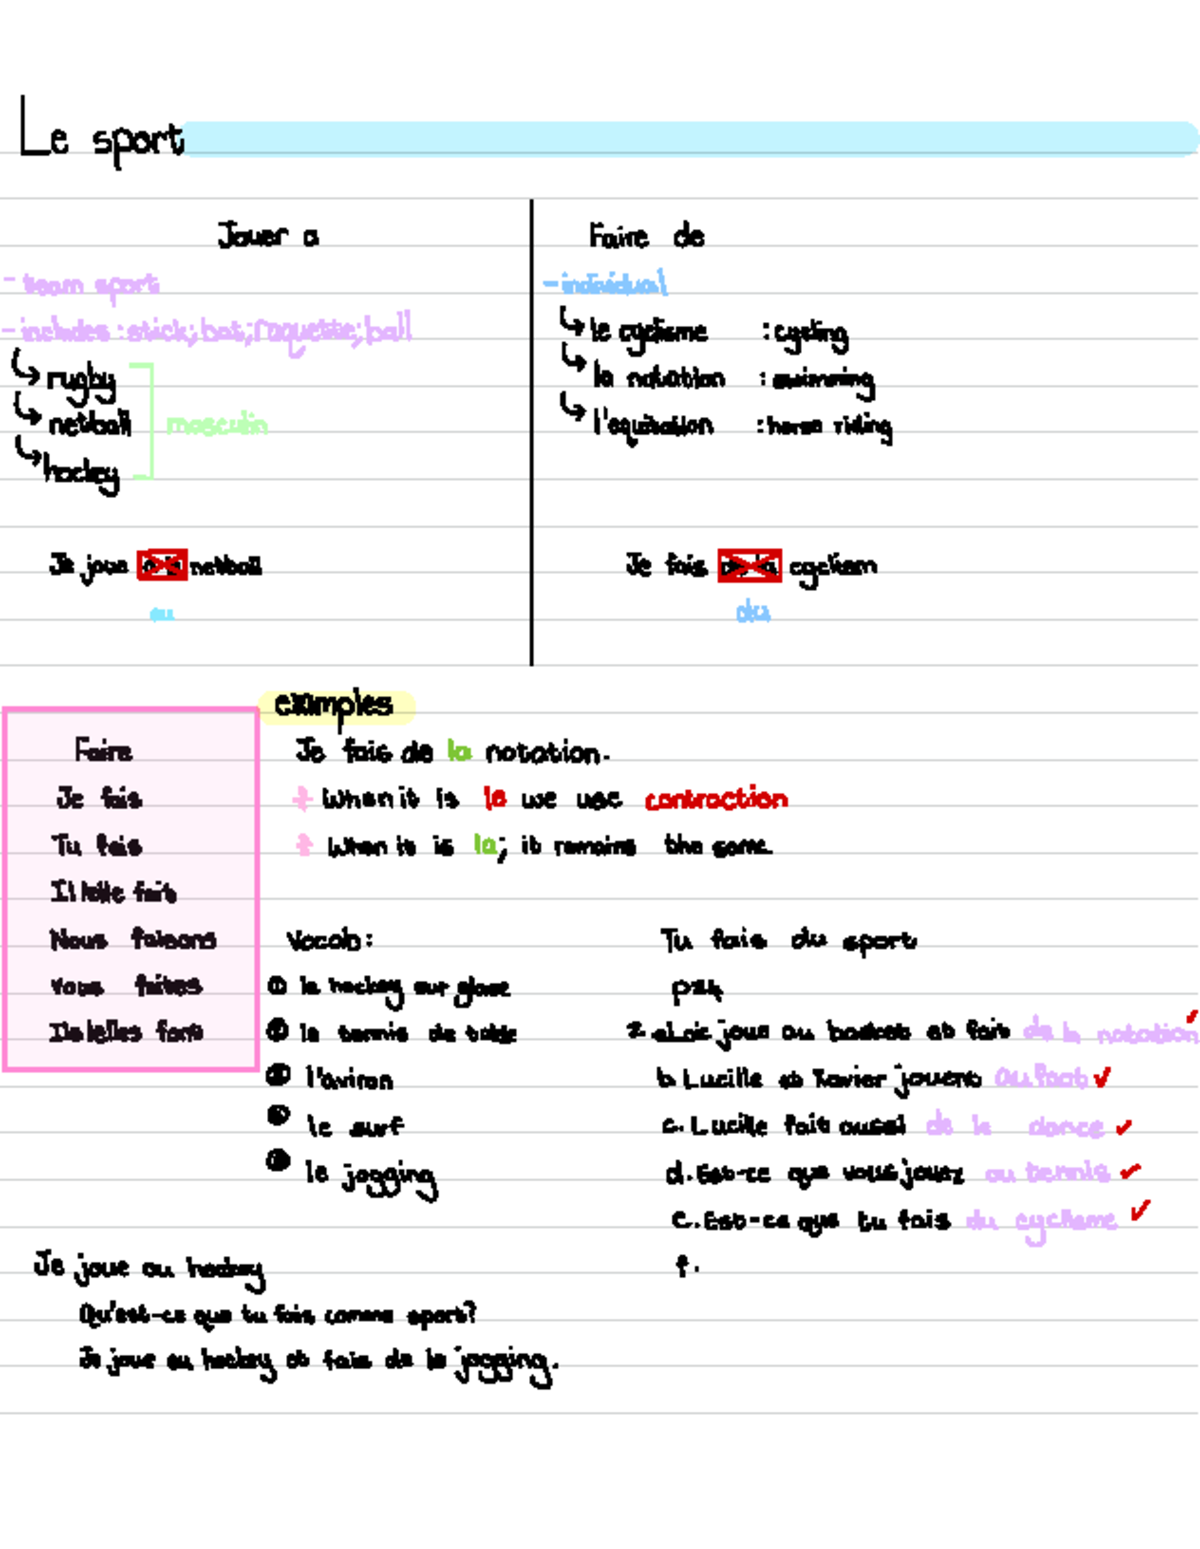 Le sport
Jouer a
- team sport
- includes : stick; bat; raquette; ball
rugby
netball
hockey
masculin
Je joue netball
au
Faire de
- individual
le cyclisme : cycling
la natation : swimming
l'equitation : horse riding
Je fais cyclism
du
Faire
Je fais
Tu fais
Il/elle fait
Nous faisons
Vous faites
Ils/elles font
examples
Je fais de la natation.
When it is le we use contraction
When it is la; it remains the same.
Vocab:
① le hockey sur glace
② le tennis de table
③ l'aviron
④ le surf
⑤ le jogging
Tu fais du sport
p24
2. a Loic joue au basket et fait de la natation
b. Lucille et Xavier jouent au foot
c. Lucille fait aussi de la dance
d. Est-ce que vous jouez au tennis
e. Est-ce que tu fais du cyclisme
f.
Je joue au hockey
Qu'est-ce que tu fais comme sport?
Je joue au hockey et fais de le jogging.